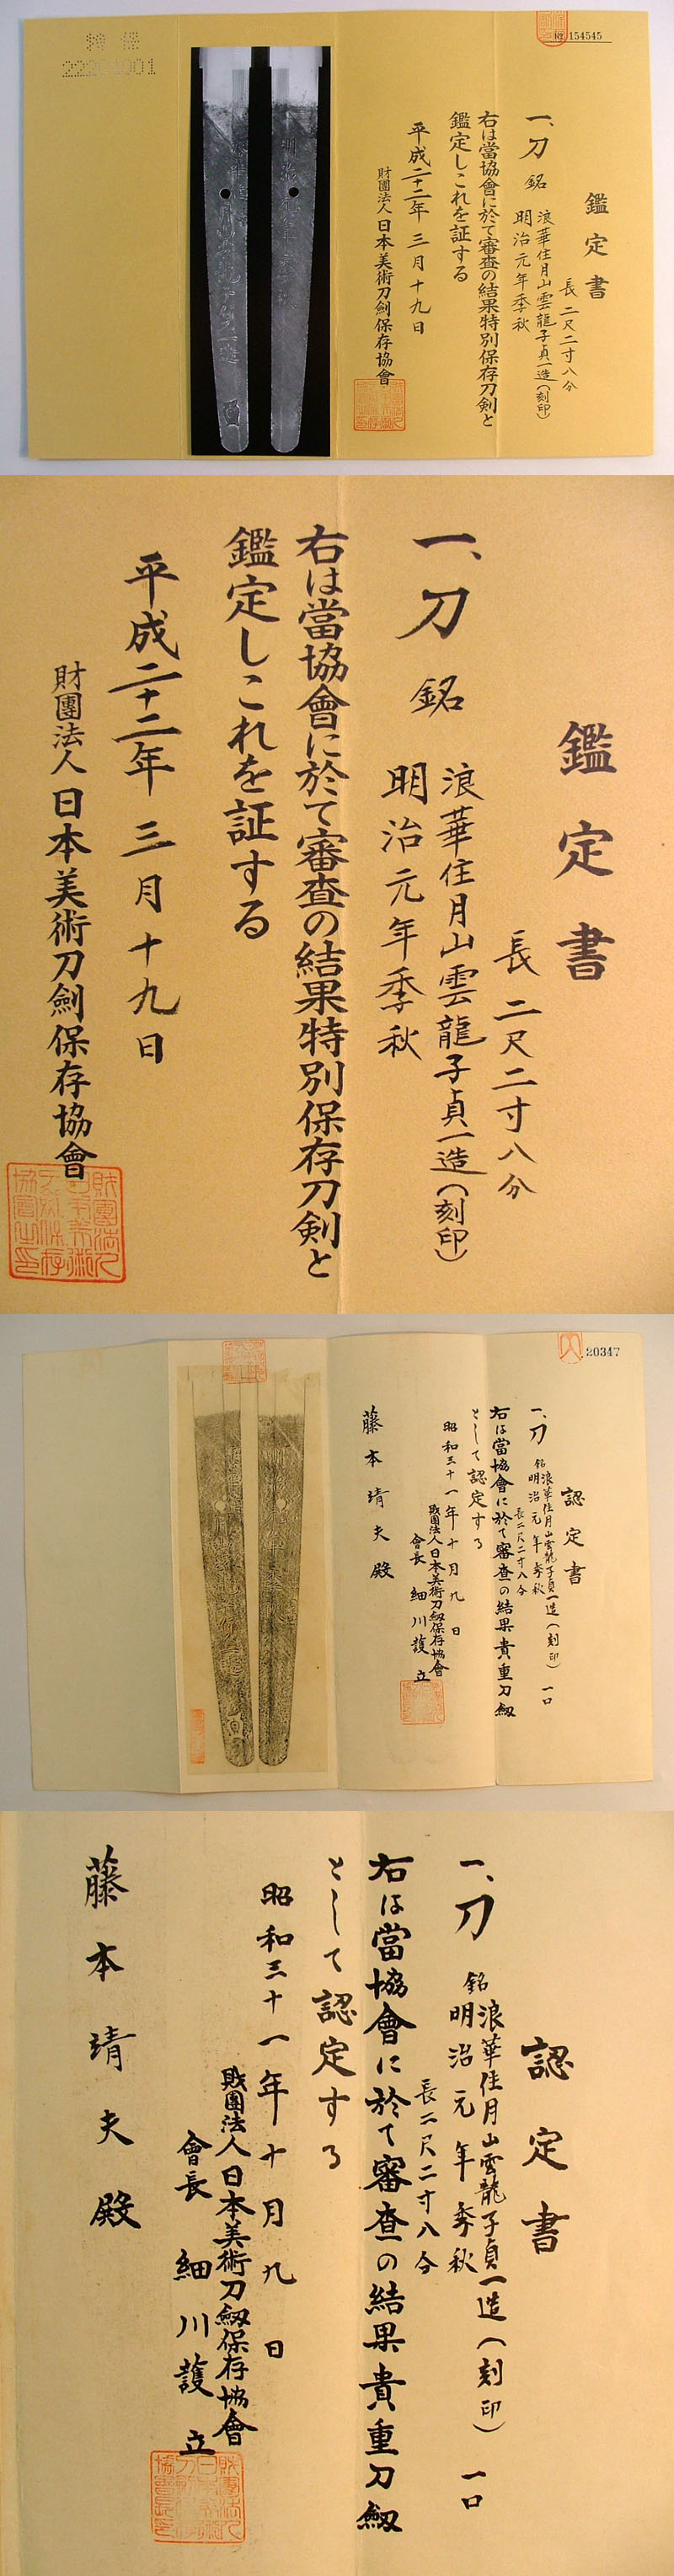 特保
154545
鑑定書
長 二尺二寸八分
一、刀 銘 浪華住月山雲龍子貞一造(刻印)
明治元年季秋
右は當協會に於て審査の結果特別保存刀剣と
鑑定しこれを証する
平成二十二年 三月十九日
財團法人 日本美術刀劍保存協會
鑑定書
長 二尺二寸八分
一、刀 銘 浪華住月山雲龍子貞一造(刻印)
明治元年季秋
右は當協會に於て審査の結果特別保存刀剣と
鑑定しこれを証する
平成二十二年 三月十九日
財團法人 日本美術刀劍保存協會
20347
認定書
一、刀 銘 浪華住月山雲龍子貞一造(刻印) 一口
明治元年季秋
長二尺二寸八分
右は當協會に於て審査の結果貴重刀劔
として認定する
昭和三十一年十月九日
財團法人日本美術刀劔保存協會
會長 細川護立
藤本靖夫殿
認定書
一、刀 銘 浪華住月山雲龍子貞一造(刻印) 一口
明治元年季秋
長二尺二寸八分
右は當協會に於て審査の結果貴重刀劔
として認定する
昭和三十一年十月九日
財團法人日本美術刀劔保存協會
會長 細川護立
藤本靖夫殿